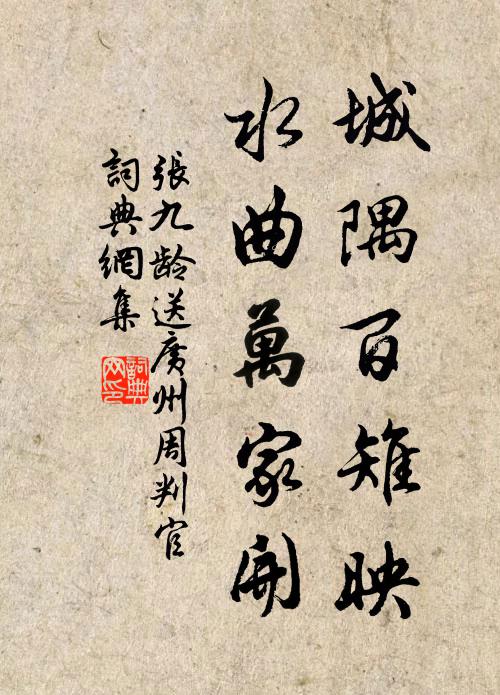 城隅百雉映
水曲萬家開
張九齡送廣州周判官
詞典網集
詞典網印